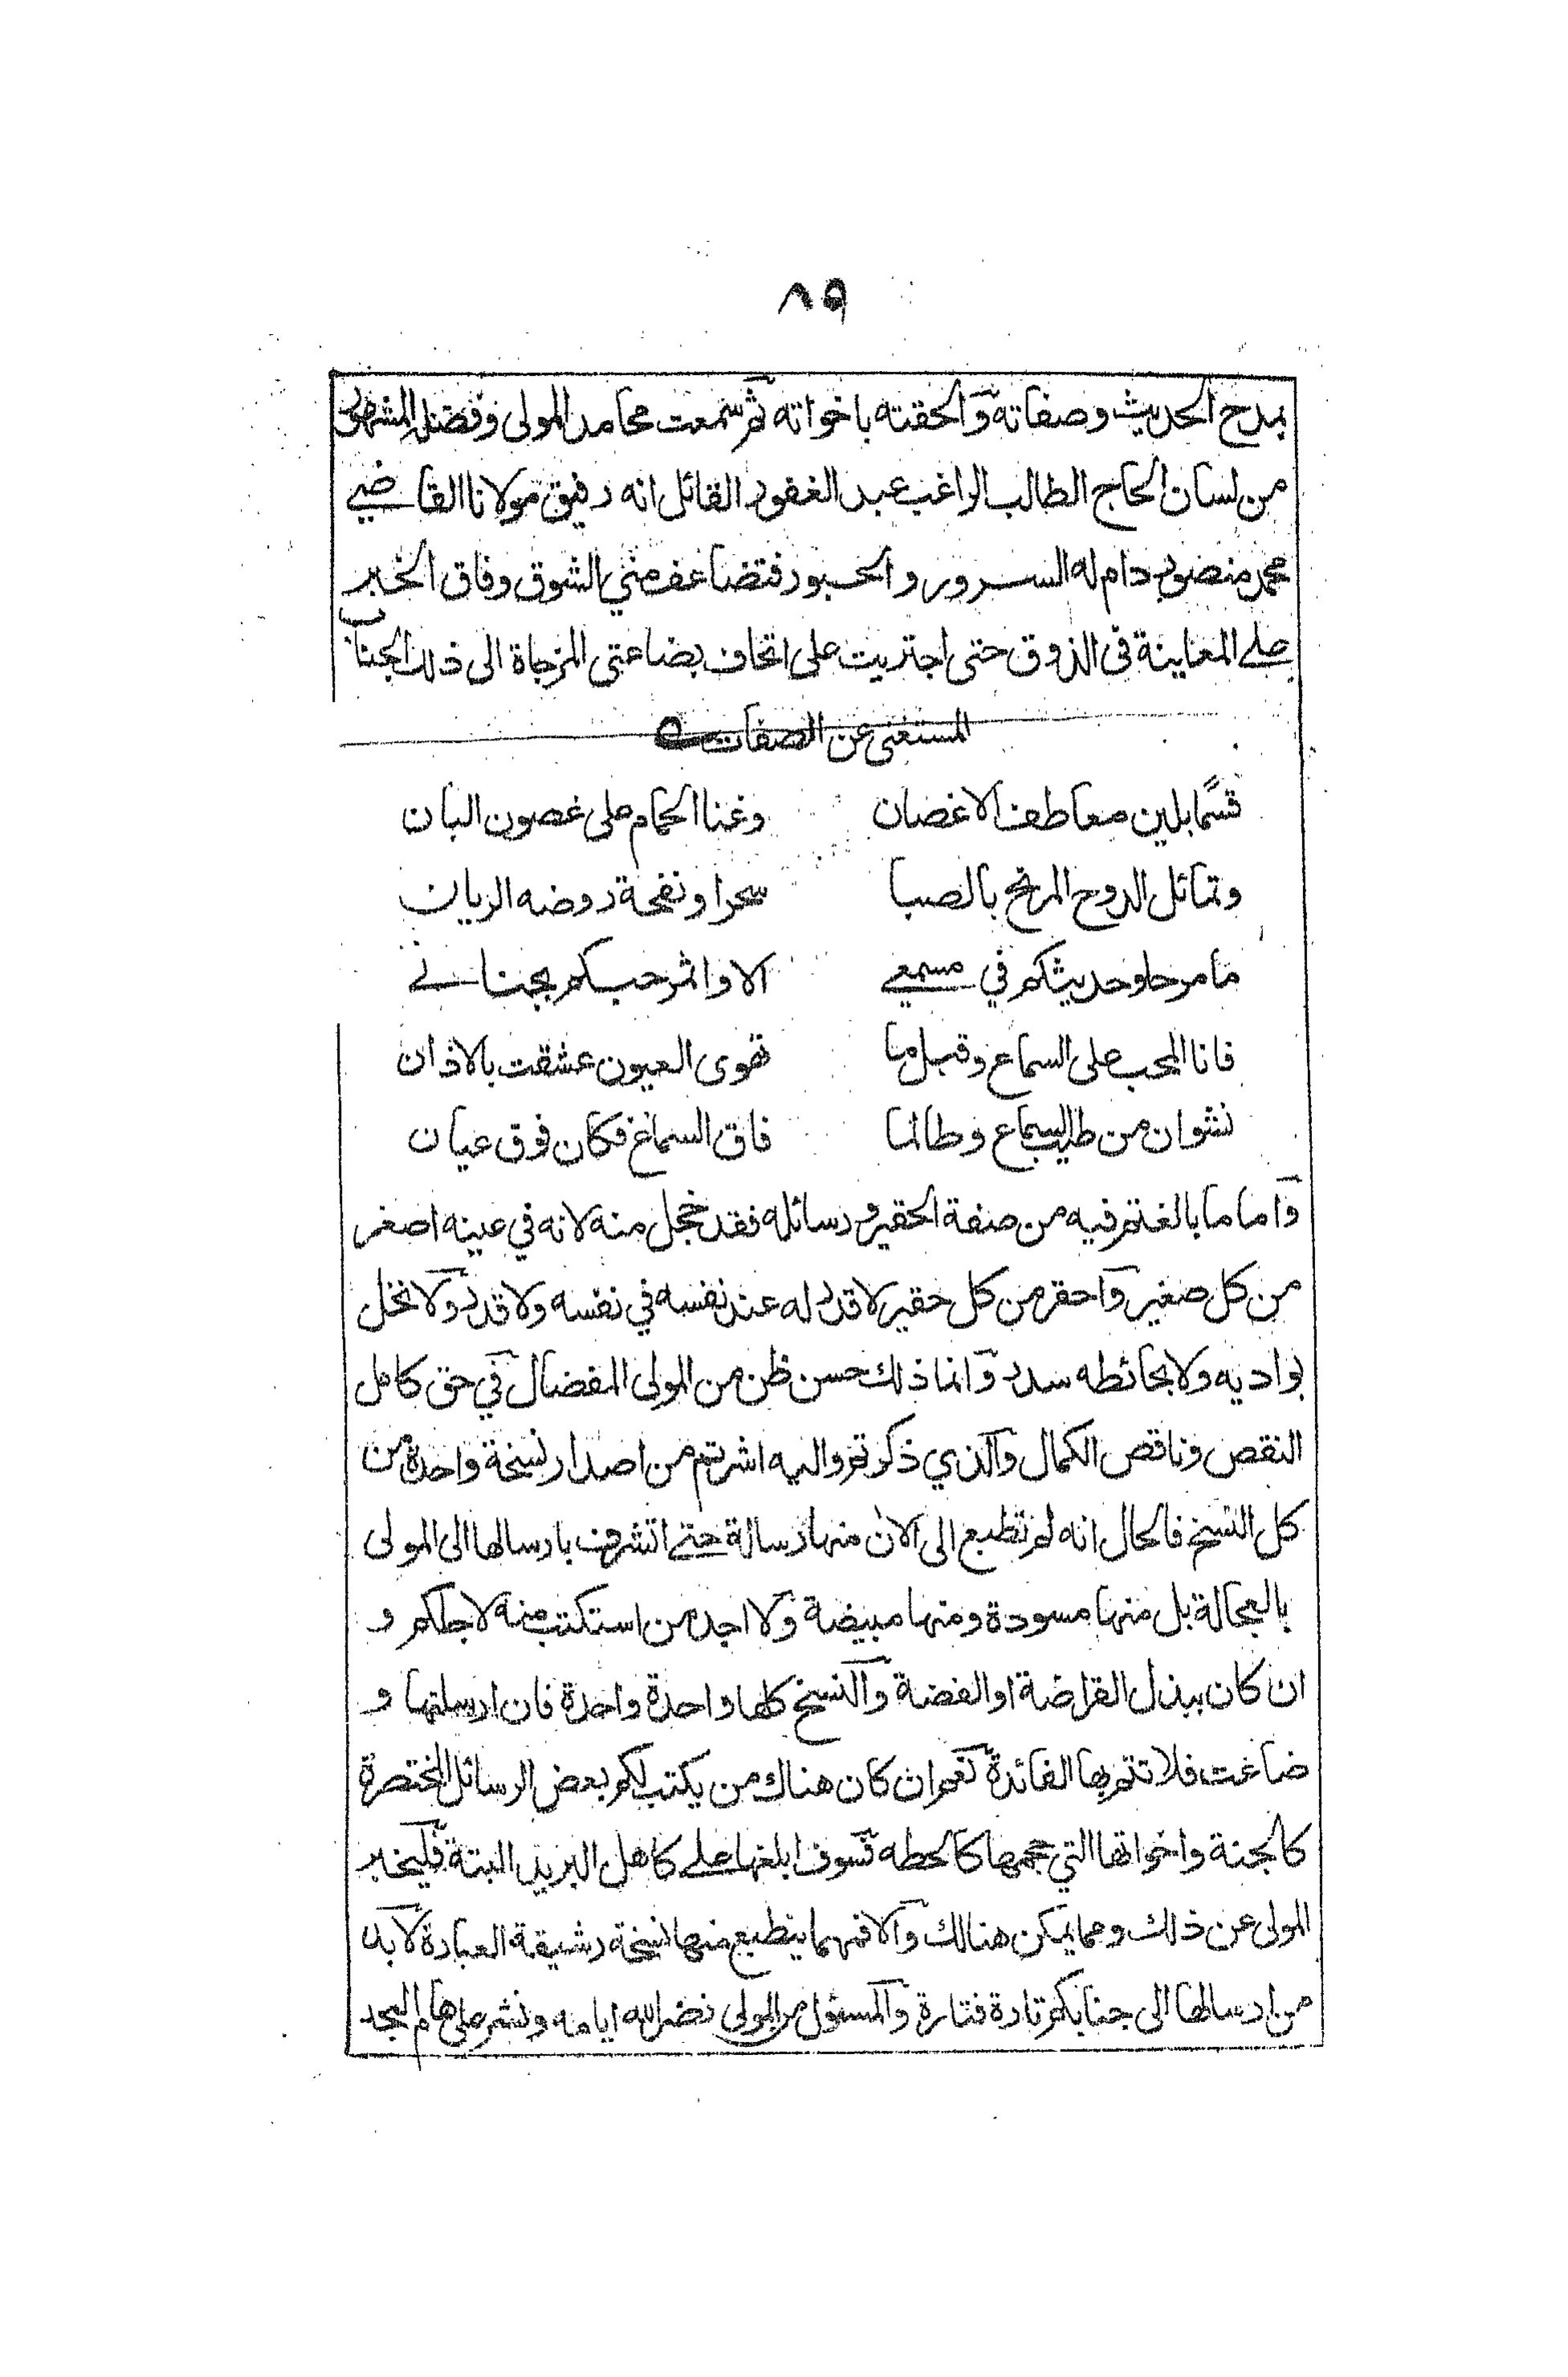 ٨٩
بمدح الحديث وصفاته والحقته باخواته ثم سمعت محامد المولى وفضله المشهور
من لسان الحاج الطالب الراغب عبد الغفور القائل انه رفيق مولانا القاضي
محمد منصور دام له السرور والحبور فتضاعف مني الشوق وفاق الخبر
على المعاينة في الذوق حتى اجتريت على اتحاف بضاعتي المزجاة الى ذلك الجناب
المستغني عن الصفات
قسمًا بلين معاطف الاغصان وغنا الحمام على غصون البان
وتمائل الدوح المرنح بالصبا سحرا ونفحة روضه الريان
ما مر حلو حديثكم في مسمعي الا واثمر حبكم بجناني
فانا المحب على السماع وقبل ما تهوى العيون عشقت بالاذان
نشوان من طيب السماع وطالما فاق السماع فكان فوق عيان
واما ما بالغتم فيه من صفة الحقير ورسائله فقد خجل منه لانه في عينه اصغر
من كل صغير واحقر من كل حقير لا قدر له عند نفسه في نفسه ولا قدر ولا نخل
بواديه ولا بحائطه سدر وانما ذلك حسن ظن من المولى المفضال في حق كامل
النقص وناقص الكمال والذي ذكرتم واليه اشرتم من اصدار نسخة واحدة من
كل النسخ فالحال انه لم تطبع الى الان منها رسالة حتى اتشرف بارسالها الى المولى
بالعجالة بل منها مسودة ومنها مبيضة ولا اجد من استكتب منه لاجلكم و
ان كان ببذل القراضة او الفضة والنسخ كلها واحدة واحدة فان ارسلتها و
ضاعت فلا تتم بها الفائدة نعم ان كان هناك من يكتب لكم بعض الرسائل المختصرة
كالجنة واخواتها التي حجمها كالحطه فسوف ابلغها على كاهل البريد البتة فليخبر
المولى عن ذلك وعما يمكن هنالك والا فمهما ينطبع منها نسخة رشيقة العبارة لا بد
من ارسالها الى جنابكم تارة فتارة والمسئول من المولى نضر الله ايامه ونشر على هام المجد